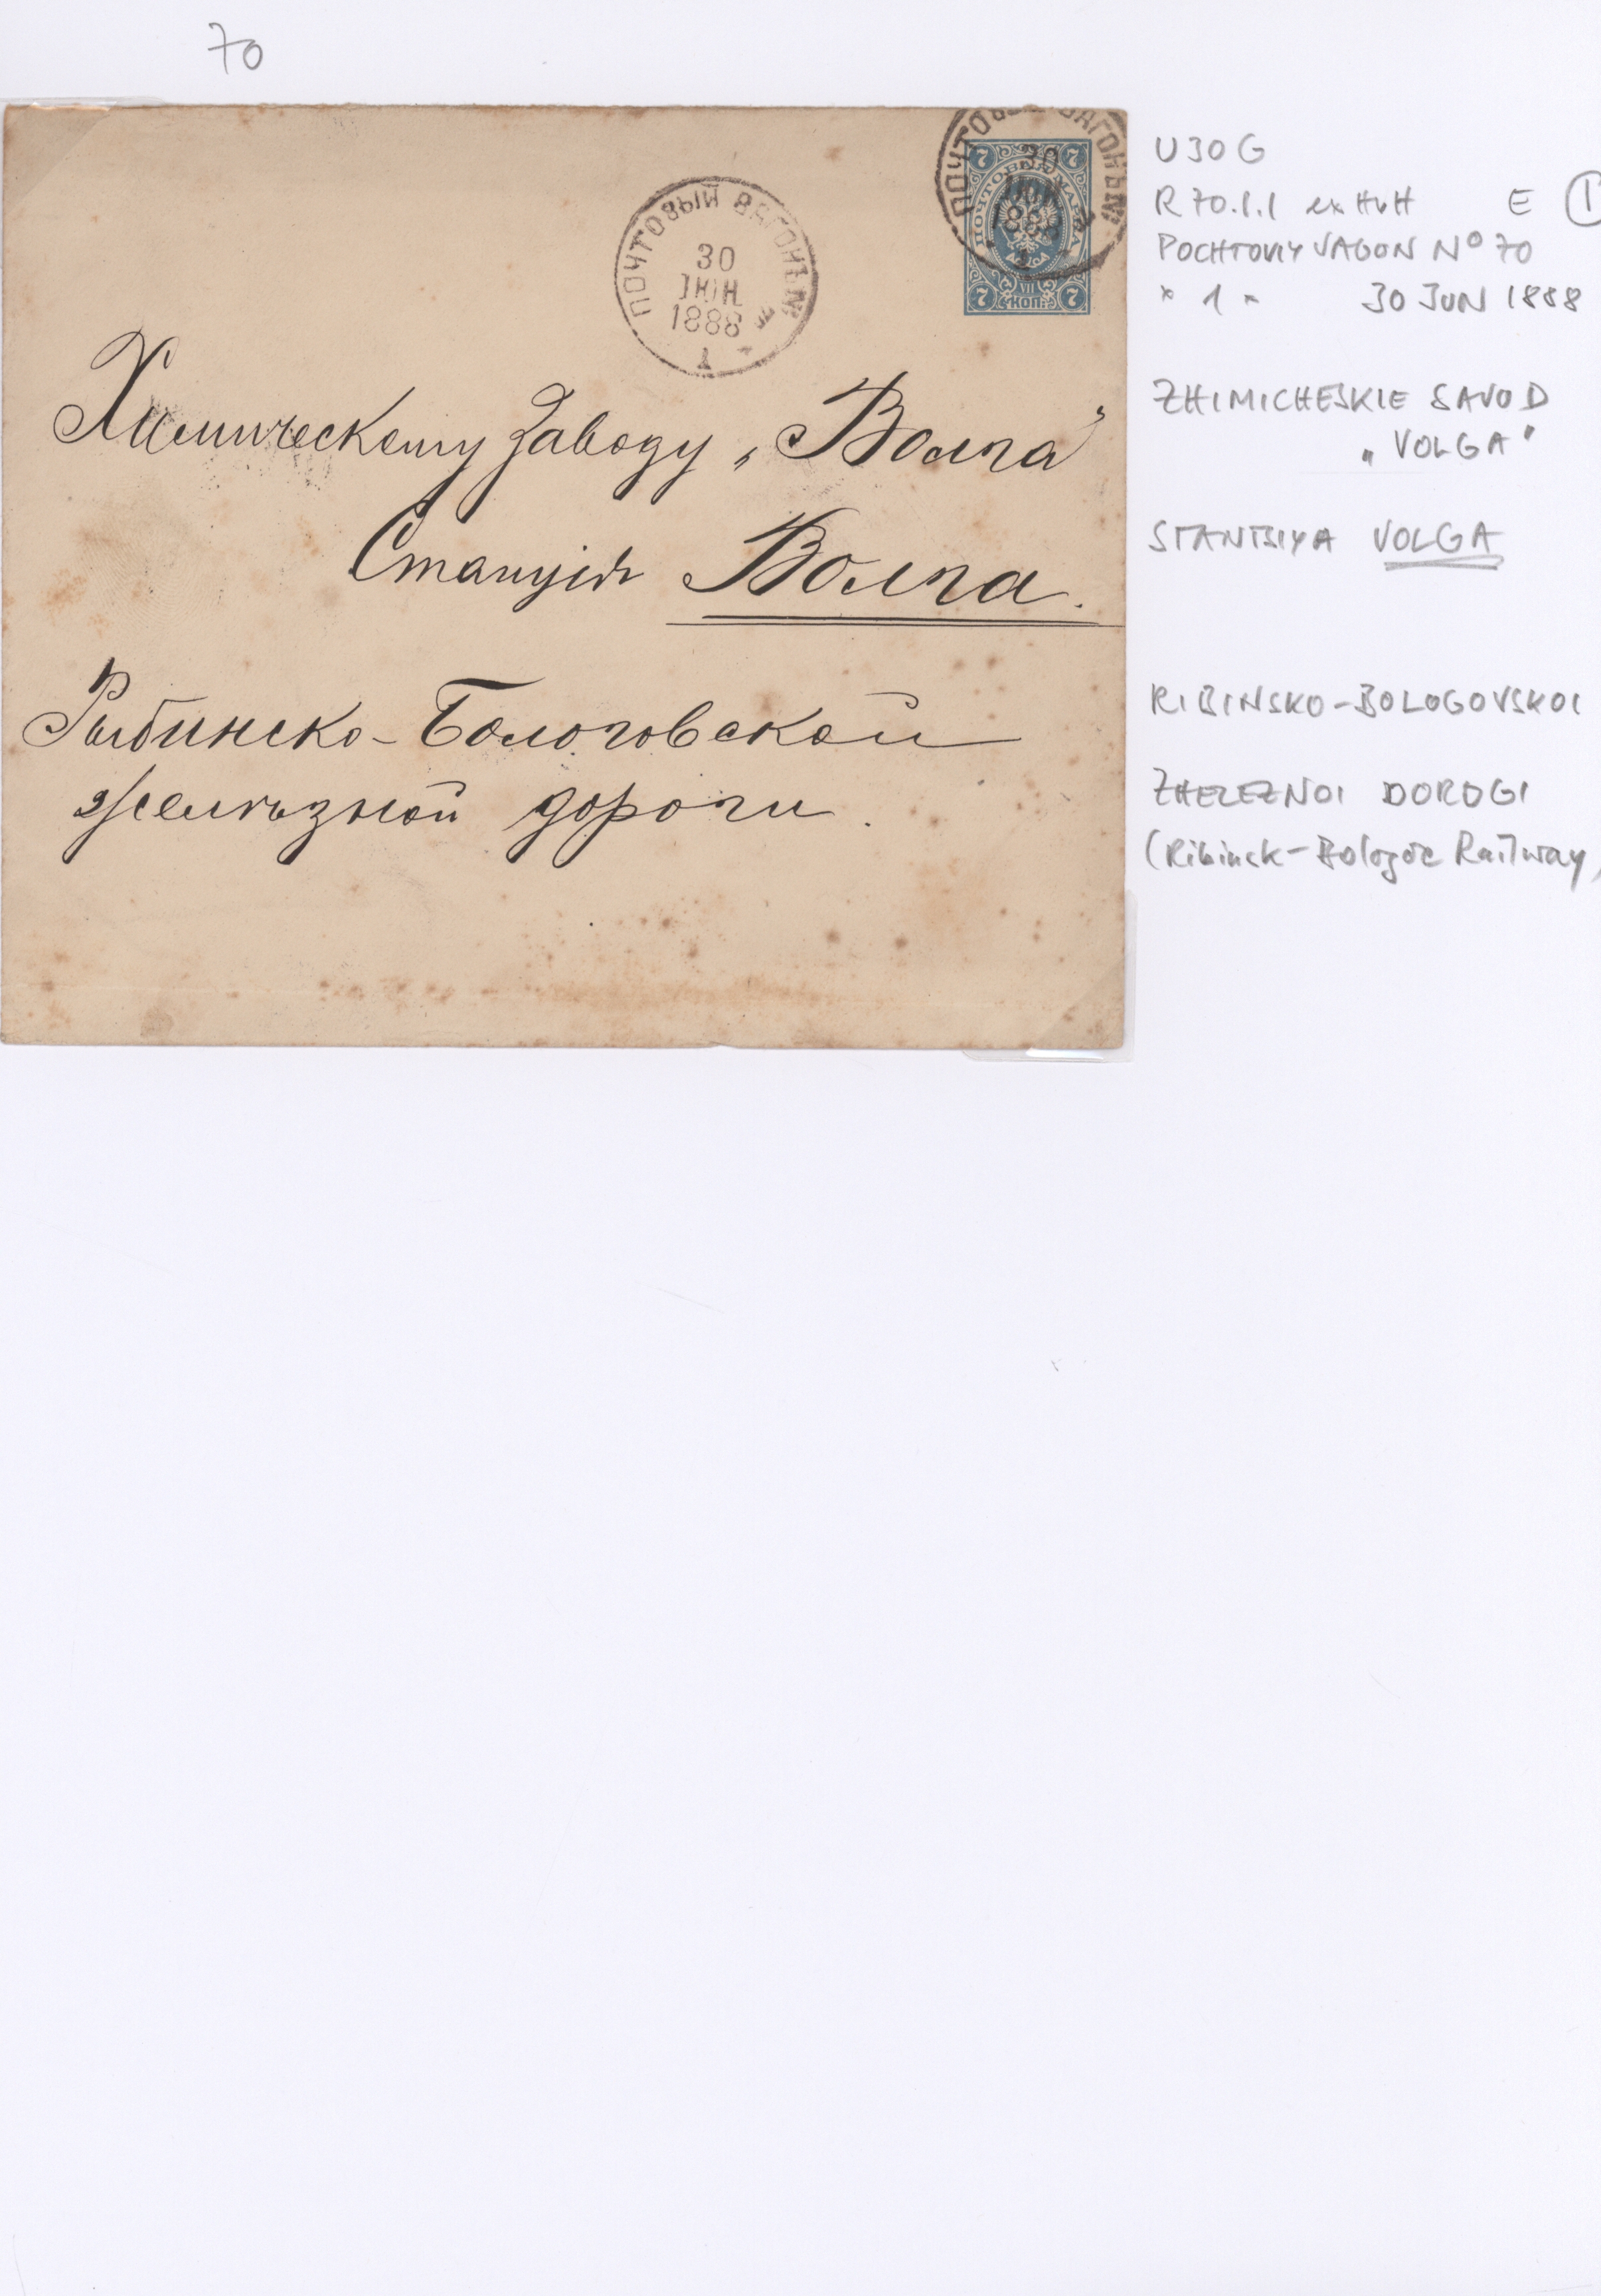 70
ПОЧТОВЫЙ ВАГОНЪ №
30
ІЮН.
1888
1
ПОЧТОВЫЙ ВАГОНЪ №
30
ІЮН
1888
1
7 7
ПОЧТОВАЯ МАРКА
VII
7 КОП. 7
Химическому Заводу „Волга"
Станція Волга.
Рыбинско-Бологовской
желѣзной дороги.
U30G
R70.1.1 ex HvH E 1
POCHTOVIY VAGON Nº 70
* 1 * 30 JUN 1888
ZHIMICHESKIE SAVOD
„VOLGA"
STANTSIYA VOLGA
RIBINSKO-BOLOGOVSKOI
ZHELEZNOI DOROGI
(Ribinsk-Bologoe Railway)